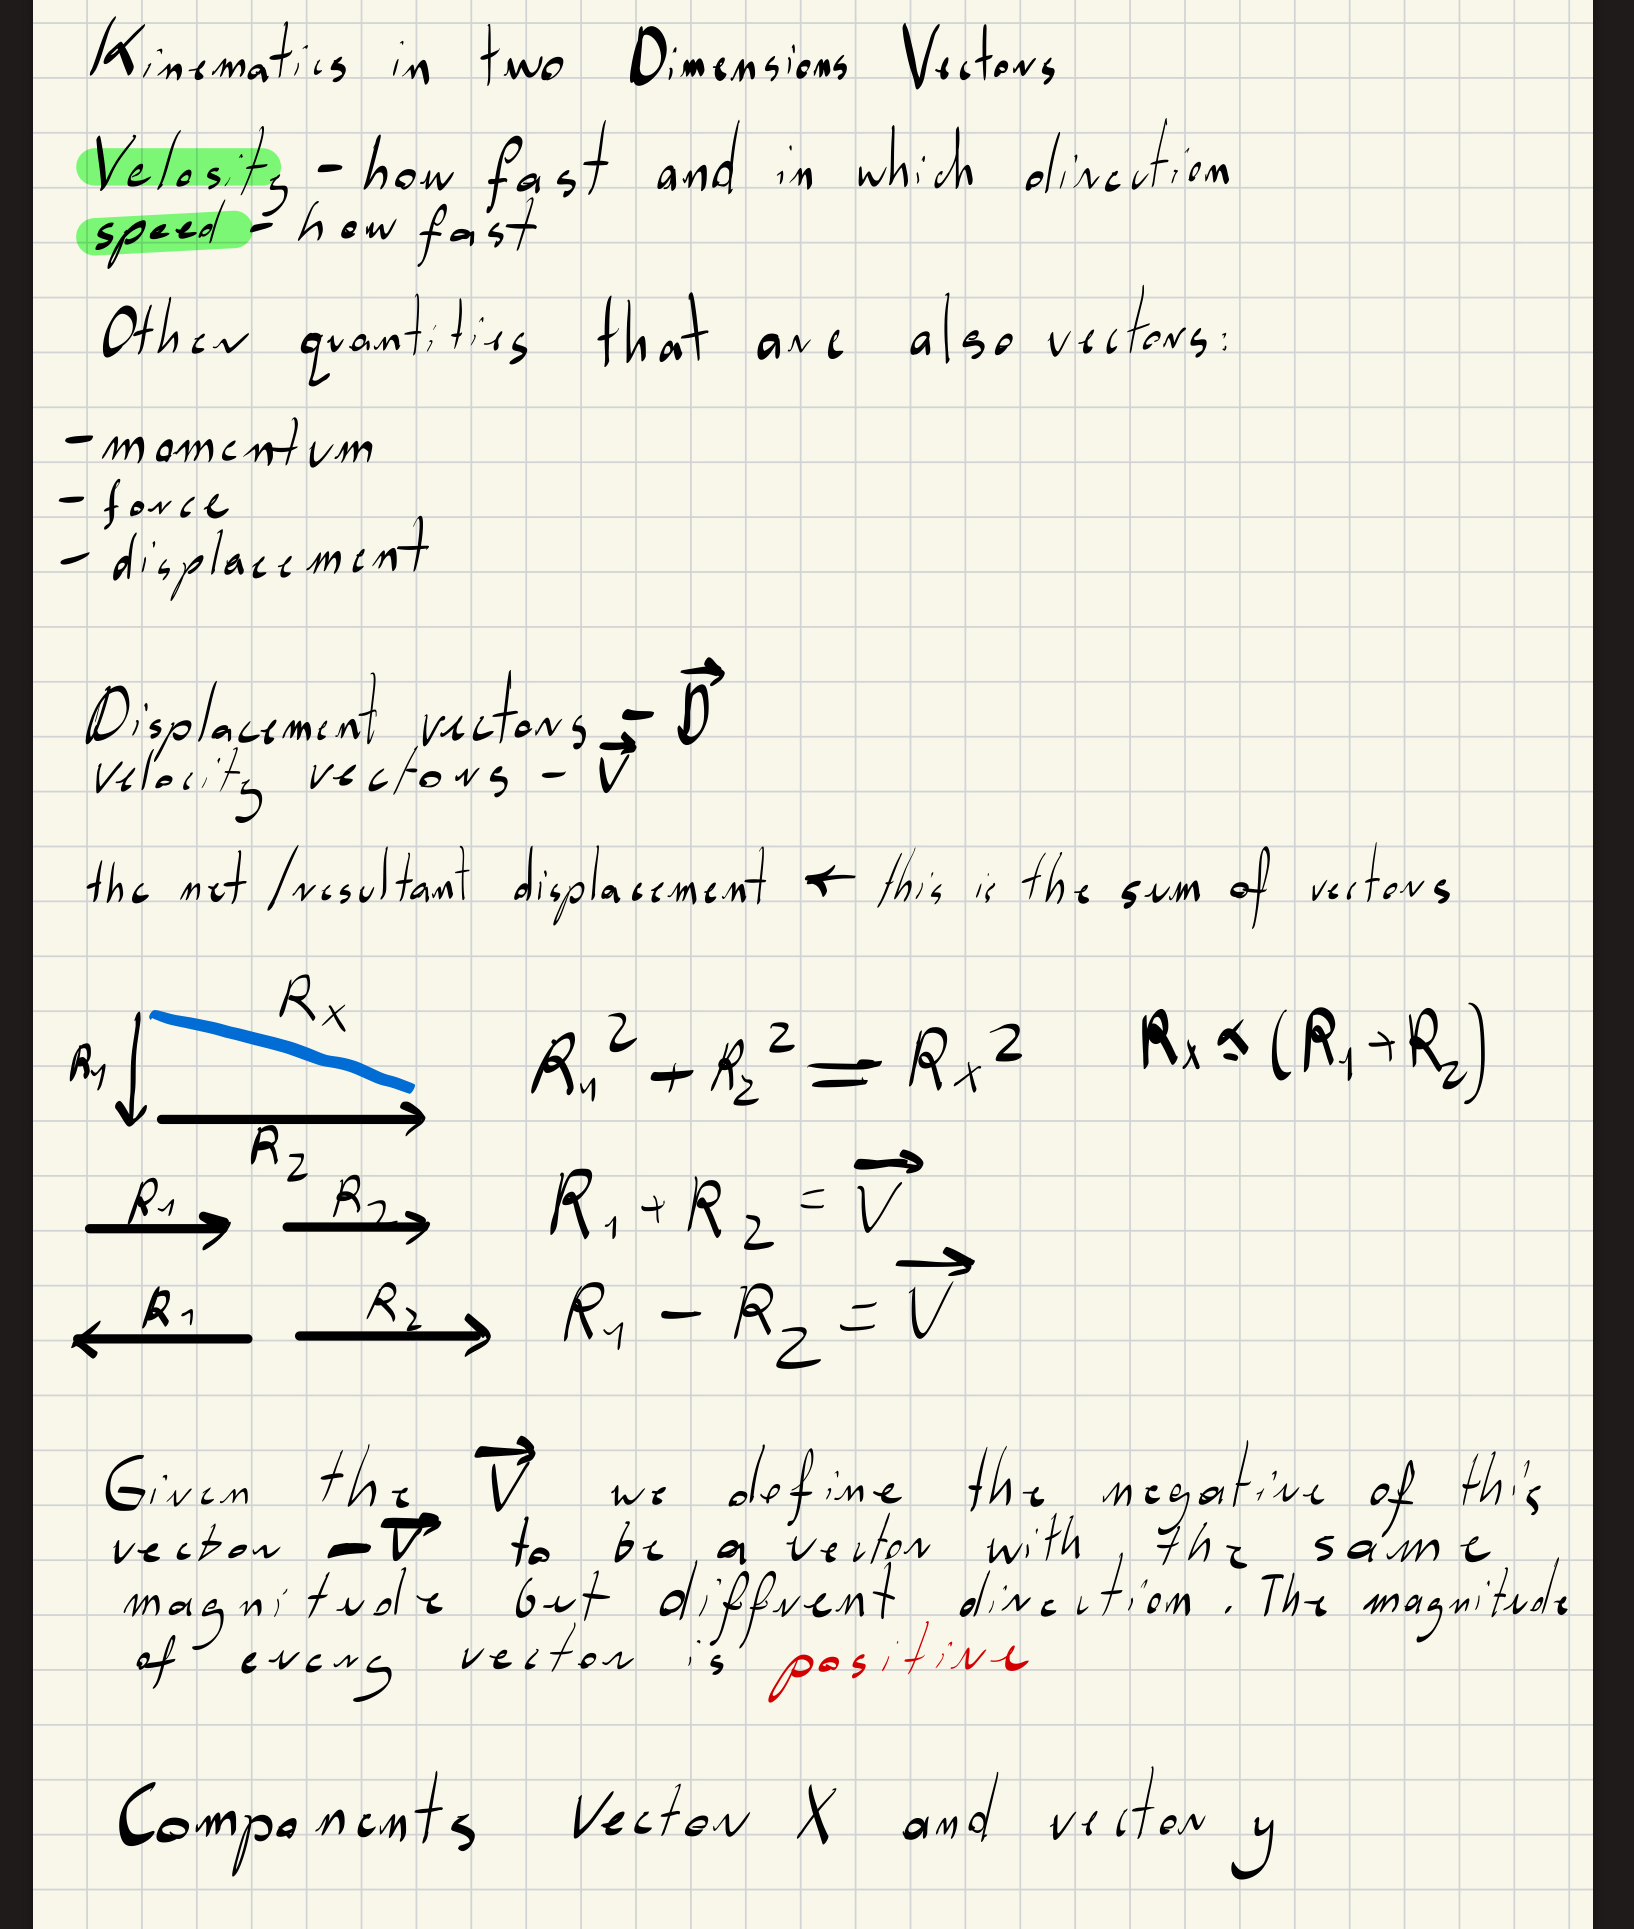 Kinematics in two Dimensions Vectors
Velosity - how fast and in which direction
speed - how fast
Other quantities that are also vectors:
- momentum
- force
- displacement
Displacement vectors - D⃗
velocity vectors - v⃗
the net /resultant displacement ← this is the sum of vectors
Rx
R1
R2
R1² + R2² = Rx²
Rx (R1 + R2)
R1 R2 R1 + R2 = V⃗
R1 R2 R1 - R2 = V⃗
Given the V⃗ we define the negative of this
vector -V⃗ to be a vector with the same
magnitude but diffrent direction. The magnitude
of every vector is positive
Components Vector X and vector y